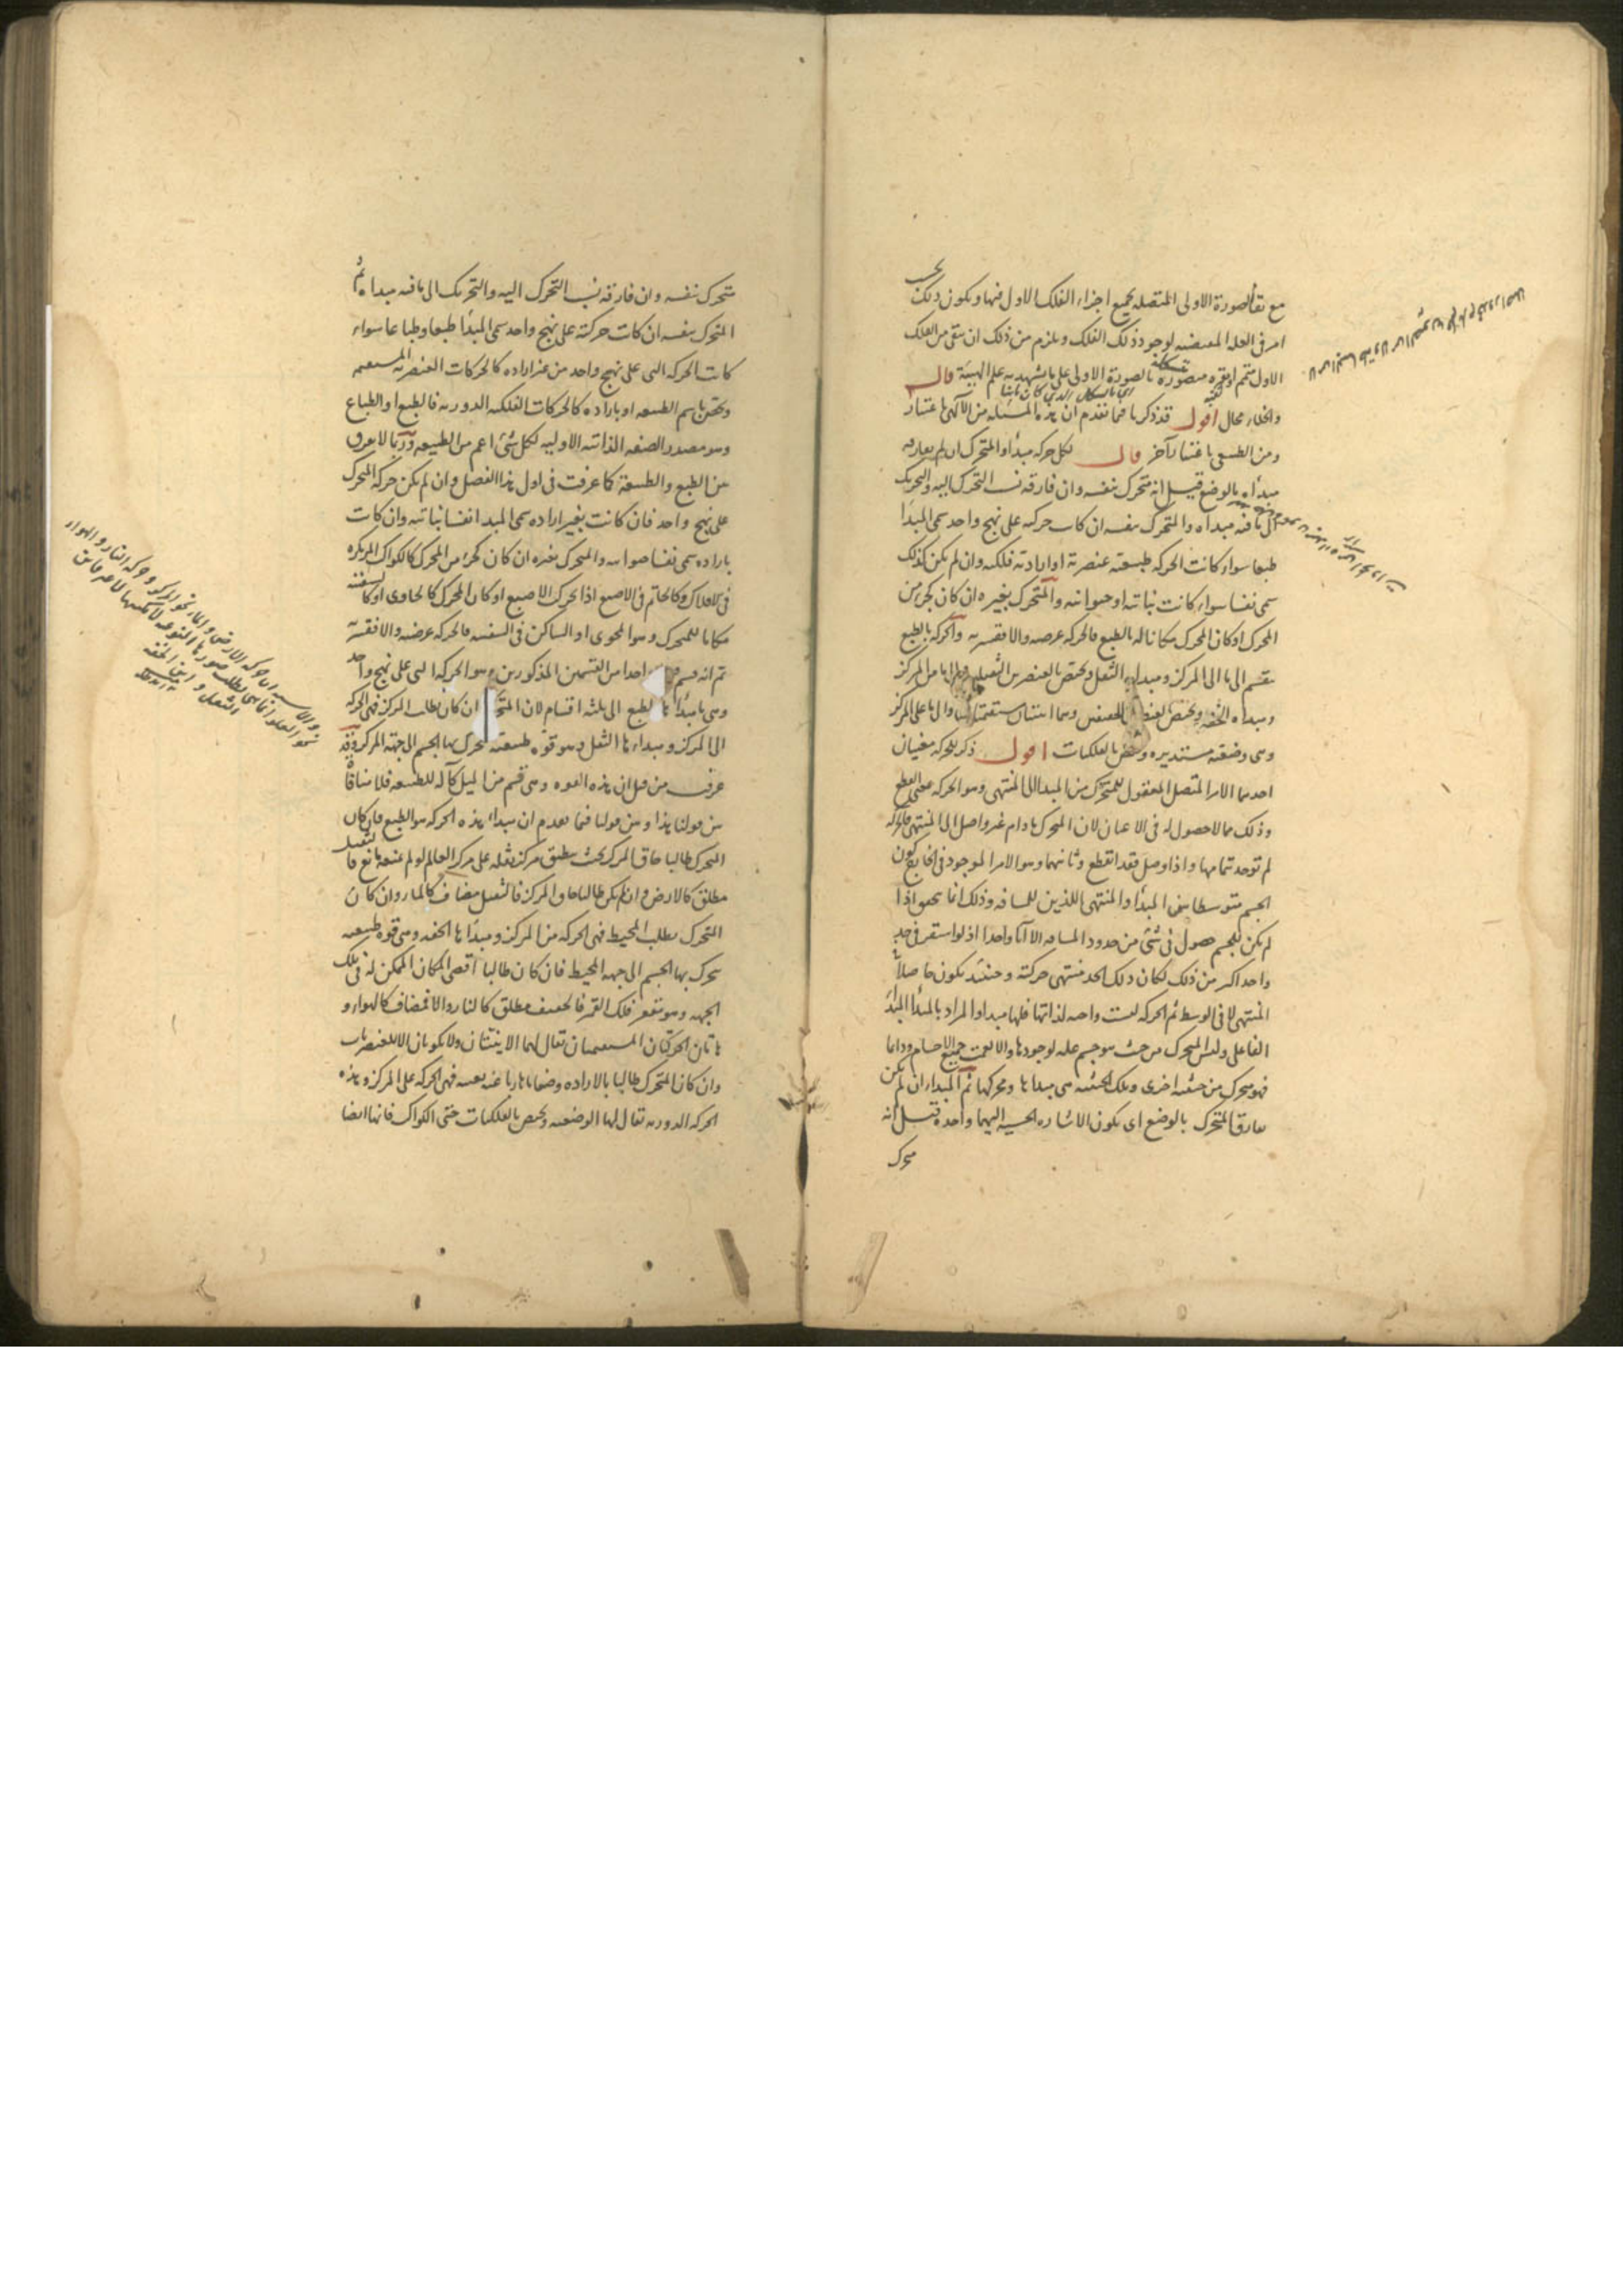 مع بقاء الصورة الاولى المتصله بجميع اجزاء الفلك الاول فيها ويكون ذلك بحسب
امر فى العلة المقتضيه لوجود ذلك الفلك ويلزم من ذلك ان يبقى من الفلك
الاول متمم او غيره متصورة بالصورة الاولى على ما يشهد به علم الهيئة قال
والخلاء محال اقول قد ذكرنا فيما تقدم ان هذه المسئله من الآلهى باعتبار
ومن الطبيعى باعتبار آخر قال لكل حركه مبدأ والمتحرك ان لم يفارقه
مبدأه بالوضع قيل انه متحرك بنفسه وان فارقه نسب التحرك اليه والتحريك
الى ما فيه مبداه والمتحرك بنفسه ان كانت حركته على نهج واحد سمى المبدأ
طبعا سواء كانت الحركه طبيعيه عنصرية او اراديه فلكيه وان لم يكن كذلك
سمى نفسا سواء كانت نباتيه او حيوانيه والمتحرك بغيره ان كان كجزء من
المحرك او كان المحرك مكانا له بالطبع فالحركه عرضيه والا فقسريه والحركه بالطبع
تنقسم الى ما الى المركز ومبدأه الثقل ويختص بالعنصرين الثقيلين والى ما من المركز
ومبدأه الخفه ويختص بالعنصرين الخفيفين وهما اينيتان مستقيمتان والى ما على المركز
وهى وضعيه مستديره وتختص بالفلكيات اقول ذكر للحركه معنيان
احدهما الامر المتصل المعقول للمتحرك من المبدأ الى المنتهى وهو الحركه بمعنى القطع
وذلك مما لا حصول له فى الاعيان لان المتحرك ما دام غير واصل الى المنتهى فالحركه
لم توجد بتمامها واذا وصل فقد انقطع وثانيهما وهو الامر الموجود فى الخارج كون
الجسم متوسطا بين المبدأ والمنتهى اللذين للمسافه وذلك انما يتحقق اذا
لم يكن للجسم حصول فى شئ من حدود المسافه الا آنا واحدا اذ لو استقر فى حد
واحد اكثر من ذلك لكان ذلك الحد منتهى حركته وحينئذ يكون حاصلا فى
المنتهى لا فى الوسط ثم الحركه ليست واجبه لذاتها فلها مبدا والمراد بالمبدأ المبدأ
الفاعلى وليس المتحرك من حيث هو جسم عله لوجودها والا لعمت جميع الاجسام ودائما
فهو متحرك من حيثيه اخرى وتلك الحيثيه هى مبداها ومحركها ثم المبدا ان لم يكن
يفارق المتحرك بالوضع اى يكون الاشاره الحسيه اليهما واحدة قيل انه
متحرك
متحرك بنفسه وان فارقه نسب التحرك اليه والتحريك الى ما فيه مبداه ثم
المتحرك بنفسه ان كانت حركته على نهج واحد سمى المبدأ طبعا وطباعا سواء
كانت الحركه التى على نهج واحد من غير اراده كالحركات العنصريه المستقيمه
ويختص باسم الطبيعه او باراده كالحركات الفلكيه الدوريه فالطبع او الطباع
وهو مصدر الصفه الذاتيه الاوليه لكل شئ اعم من الطبيعه وربما لا يفرق
بين الطبع والطبيعة كما عرفت فى اول هذا الفصل وان لم يكن حركه المتحرك
على نهج واحد فان كانت بغير اراده سمى المبدا نفسا نباتيه وان كانت
باراده سمى نفسا حيوانيه والمتحرك بغيره ان كان كجزء من المحرك كالكواكب المركوزه
فى الافلاك وكالخاتم فى الاصبع اذا تحرك الاصبع او كان المحرك كالحاوى او كالسفينه
مكانا للمتحرك وهو المحوى او الساكن فى السفينه فالحركه عرضيه والا فقسريه
ثم انه قسم واحدا من القسمين المذكورين وهو الحركه التى على نهج واحد
وهى ما مبدأها الطبع الى ثلثه اقسام لان المتحرك ان كان يطلب المركز فهى الحركه
الى المركز ومبداءها الثقل وهو قوه طبيعيه يتحرك بها الجسم الى جهه المركز وقد
عرفت من قبل ان هذه القوه وهى قسم من الميل كآله للطبيعه فلا منافاة
بين قولنا هذا وبين قولنا فيما تقدم ان مبداء هذه الحركه هو الطبع فان كان
المتحرك طالبا حاق المركز بحيث ينطبق مركز ثقله على مركز العالم لو لم يمنعه مانع فالثقيل
مطلق كالارض وان لم يكن طالبا حاق المركز فالثقيل مضاف كالماء وان كان
المتحرك يطلب المحيط فهى الحركه من المركز ومبدأها الخفه وهى قوه طبيعيه
يتحرك بها الجسم الى جهه المحيط فان كان طالبا اقصى المكان الممكن له فى تلك
الجهه وهو مقعر فلك القمر فالخفيف مطلق كالنار والا فمضاف كالهواء و
هاتان الحركتان المستقيمتان يقال لهما الاينيتان ولا يكونان الا للعنصريات
وان كان المتحرك طالبا بالاراده وضعا ما هاربا عنه بعينه فهى الحركه على المركز وهذه
الحركه الدوريه يقال لها الوضعيه وتختص بالفلكيات حتى الكواكب فانها ايضا